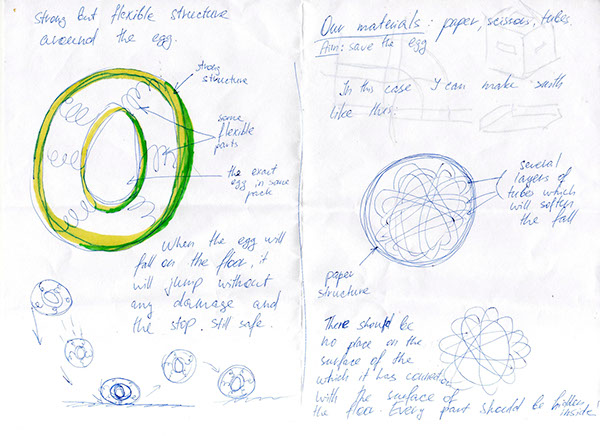 strong but flexible structure
around the egg.
strong
structure
some
flexible
parts
the exact
egg in some
pack
When the egg will
fall on the floor, it
will jump without
any damage and
the stop. Still safe.
Our materials: paper, scissors, tubes.
Aim: save the egg
In this case I can make smth
like this.
several
layers of
tubes which
will soften
the fall
paper
structure
There should be
no place on the
surface of the
which it has connection
with the surface of
the floor. Every part should be hidden
inside!